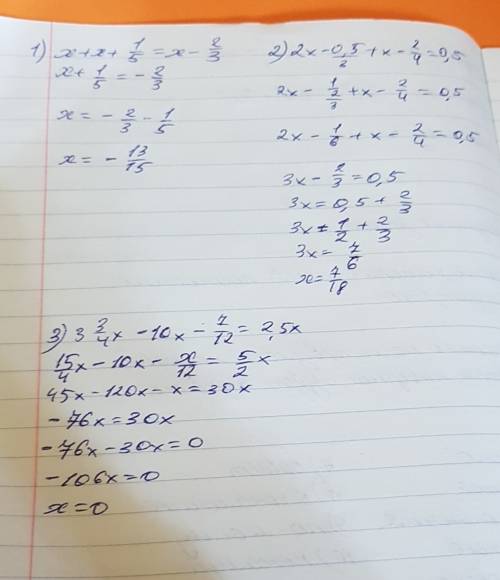 1) x + x + 1/5 = x - 2/3
x + 1/5 = - 2/3
x = - 2/3 - 1/5
x = - 13/15
2) 2x - 0,5/2 + x - 2/4 = 0,5
2x - 1/2/3 + x - 2/4 = 0,5
2x - 1/6 + x - 2/4 = 0,5
3x - 2/3 = 0,5
3x = 0,5 + 2/3
3x = 1/2 + 2/3
3x = 7/6
x = 7/18
3) 3 3/4 x - 10x - 7/12 = 2,5x
15/4 x - 10x - x/12 = 5/2 x
45x - 120x - x = 30x
- 76x = 30x
- 76x - 30x = 0
- 106x = 0
x = 0